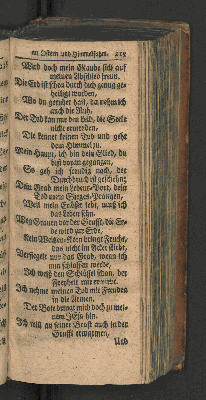 an Ostern und Himmelfahrt. 215
Wird doch mein Glaube sich auf
meinen Abschied freun.
Die Erd ist schon durch dich genug ge-
heiliget worden,
Wo du geruhet hast, da nehm ich
auch die Ruh.
Der Tod kan nur den Leib, die Seele
nicht ermorden.
Die kennet keinen Tod und geht
dem Himmel zu.
Mein Haupt, ich bin dein Glied, du
bist voran gegangen,
So geh ich freudig nach, der
Durchbruch ist geschehn;
Dein Grab mein Lebens-Port, dein
Tod mein Sieges-Prangen,
Weil mein Erlöser lebt, muß ich
das Leben sehn.
Weg Grauen vor der Gruft, die Er-
de wird zur Erde,
Kein Weitzen-Korn bringt Frucht,
das nicht im Acker stirbt,
Versiegelt nur das Grab, wenn ich
nun schlaffen werde,
Ich weiß den Schlüssel schon, der
Freyheit mir erwirbt.
Ich nehme meinen Tod mit Freuden
in die Armen,
Der Bote bringt mich doch zu mei-
nem JEsu hin.
Ich will an seiner Brust auch in der
Grufft erwarmen,
Und